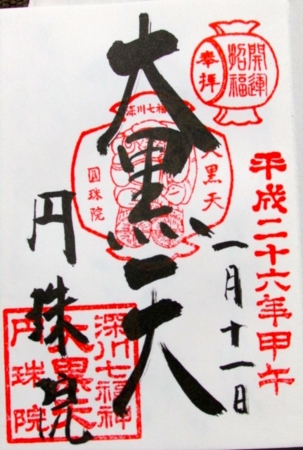 開運
招福
奉拝
平成二十六年甲午
一月十一日
深川七福神
大黒天
圓珠院
大黒天
円珠院
深川七福神
大黒天
円珠院